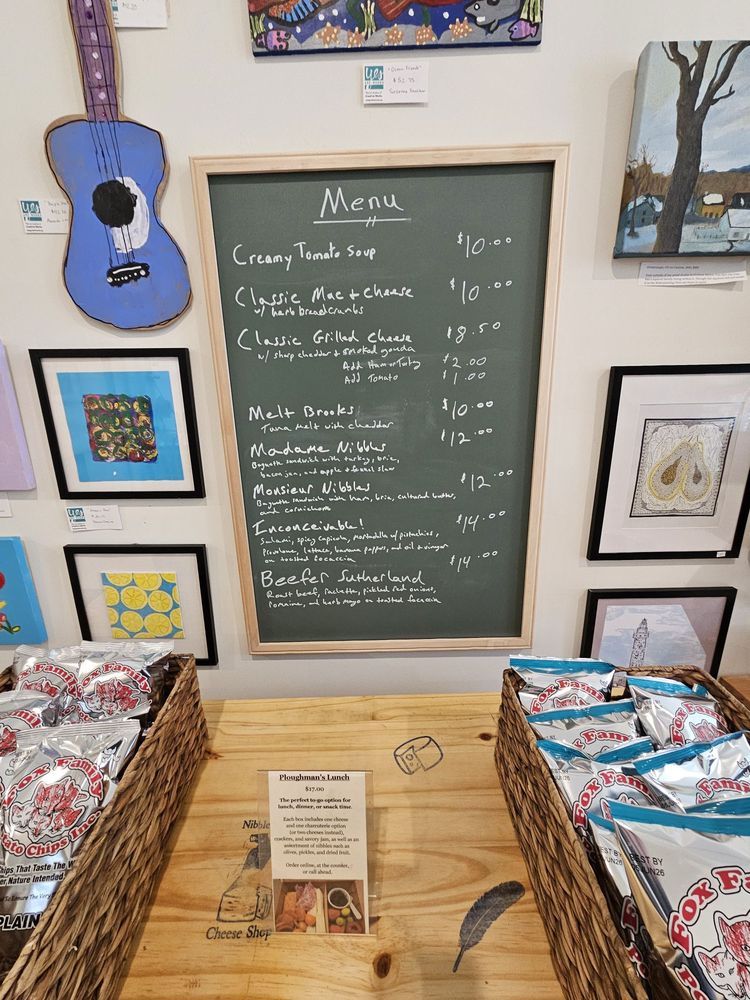 "Ocean Friends"
$52.75
Menu
Creamy Tomato Soup $10.00
Classic Mac + Cheese $10.00
w/ herb breadcrumbs
Classic Grilled Cheese $8.50
w/ sharp cheddar + smoked gouda
Add Ham or Turkey $2.00
Add Tomato $1.00
Melt Brooks $10.00
Tuna melt with cheddar
Madame Nibbles $12.00
Baguette sandwich with turkey, brie,
bacon jam, and apple + fennel slaw
Monsieur Nibbles $12.00
Baguette sandwich with ham, brie, cultured butter,
and cornichons
Inconceivable! $14.00
Salami, spicy capicola, mortadella w/ pistachios,
Provolone, lettuce, banana peppers, and oil + vinegar
on toasted focaccia
Beefer Sutherland $14.00
Roast beef, raclette, pickled red onions,
romaine, and herb mayo on toasted focaccia
Fox Family
Potato Chips Inc.
Chips That Taste The Way
PLAIN
Ploughman's Lunch
$17.00
The perfect to-go option for
lunch, dinner, or snack time.
Each box includes one cheese
and one charcuterie option
(or two cheeses instead),
crackers, and savory jam, as well as an
assortment of nibbles such as
olives, pickles, and dried fruit.
Order online, at the counter,
or call ahead.
Nibble
Cheese Shop
Fox Family
Fox Family
Fox Family
Fox Family
Fox Family
BEST BY
JUN26
BEST BY
JUN26
Fox Family